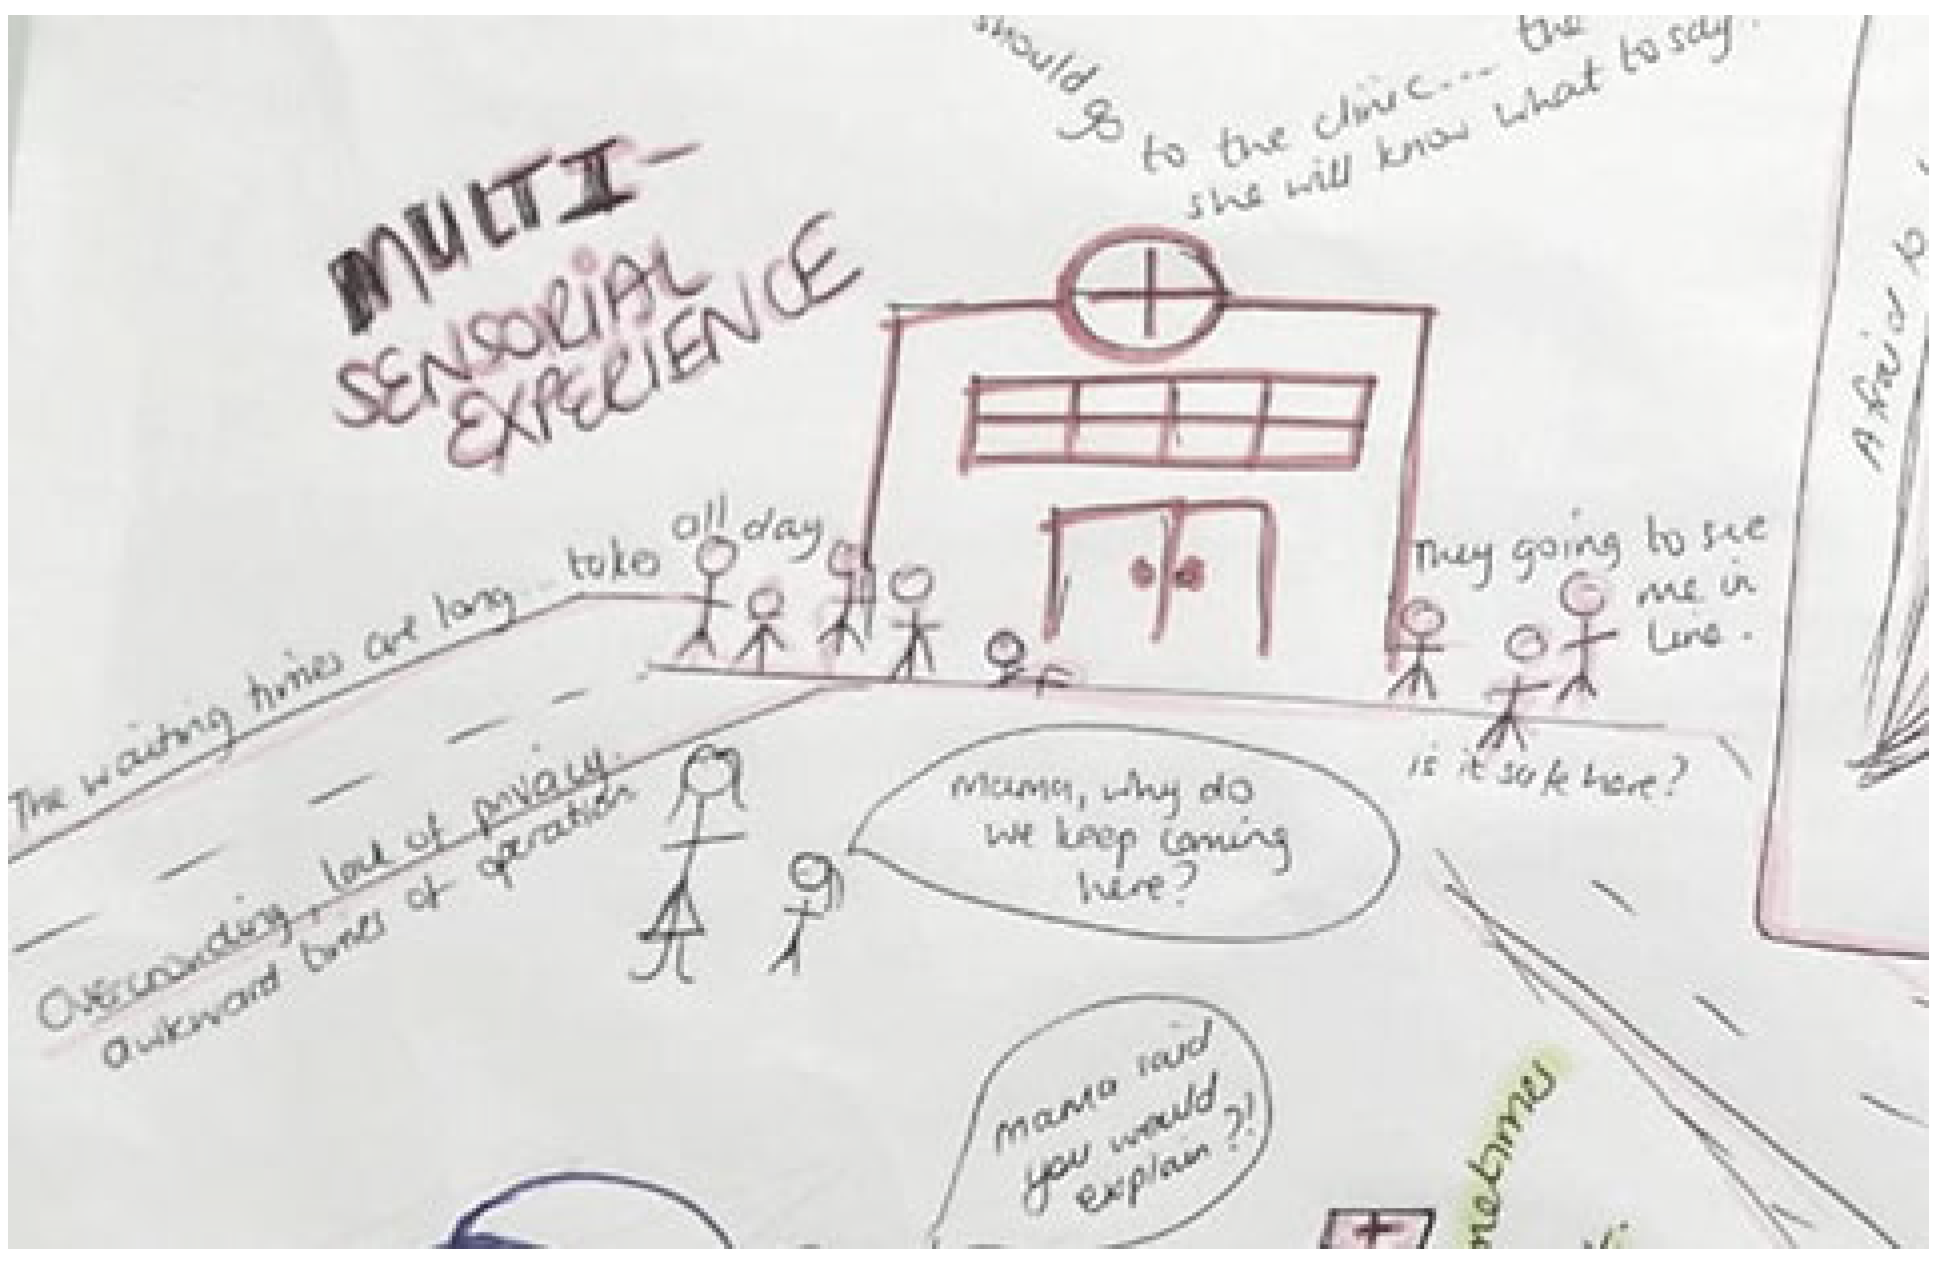 should go to the clinic... the
she will know what to say.
MULTI-
SENSORIAL
EXPERIENCE
The waiting times are long... take all day
They going to see
me in
line.
is it safe here?
Overcrowding, lack of privacy.
awkward times of operation
Mama, why do
we keep coming
here?
Mama said
you would
explain?!
Afraid to